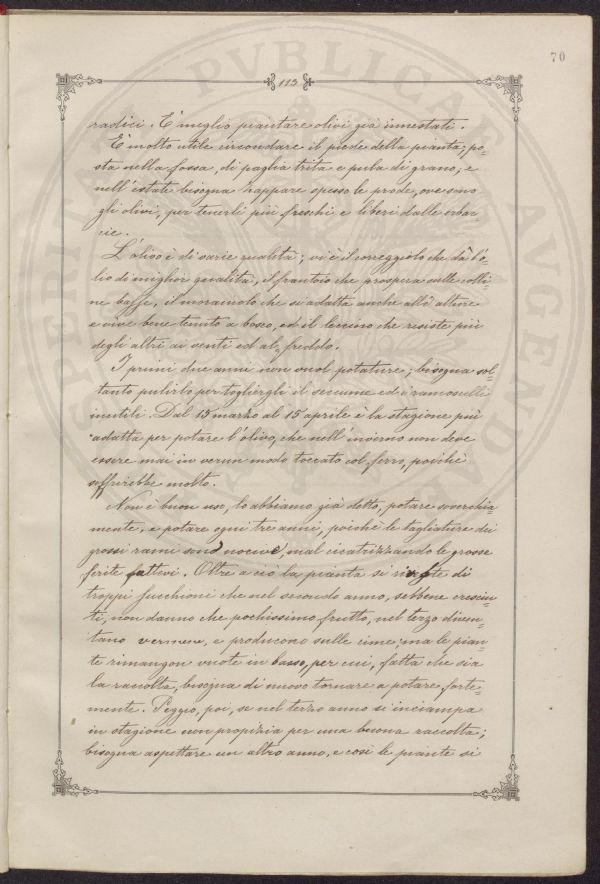 70
113
radici. È meglio piantare olivi già innestati.
È molto utile circondare il piede della pianta, po-
sta nella fossa, di paglia trita e pula di grano; e
nell'estate bisogna zappare spesso le prode, ove sono
gli olivi, per tenerli più freschi e liberi dalle erbac-
cie.
L'olivo è di varie qualità; vi è il correggiolo che dà l'o-
lio di miglior qualità, il frantoio che prospera sulle colli-
ne basse, il moraiuolo che si adatta anche alle alture
e vive bene tenuto a bosco, ed il leccino che resiste più
degli altri ai venti ed al freddo.
I primi due anni non vuol potature; bisogna sol-
tanto pulirlo per togliergli il seccume ed i ramoscelli
inutili. Dal 15 marzo al 15 aprile è la stagione più
adatta per potare l'olivo, che nell'inverno non deve
essere mai in verun modo toccato col ferro, poichè
soffrirebbe molto.
Non è buon uso, lo abbiamo già detto, potare soverchia-
mente, e potare ogni tre anni, poichè le tagliature dei
grossi rami sono nocive, mal cicatrizzando le grosse
ferite fattevi. Oltre a ciò la pianta si riveste di
troppi succhioni che nel secondo anno, sebbene cresciu-
ti, non danno che pochissimo frutto, nel terzo diven-
tano vermene, e producono sulle cime; ma le pian-
te rimangon vuote in basso, per cui, fatta che sia
la raccolta, bisogna di nuovo tornare a potare forte-
mente. Peggio, poi, se nel terzo anno si inciampa
in stagione non propizia per una buona raccolta;
bisogna aspettare un altro anno, e così le piante si